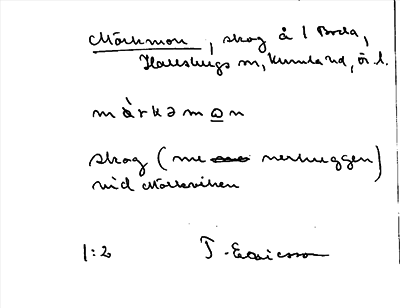 Mörkmon, skog å 1 Boda,
Hallsbergs sn, Kumla hd, ör. l.
mȧrkəmo̲n
skog (nu nerhuggen)
vid Mörkviken
1:2 T. Ericsson